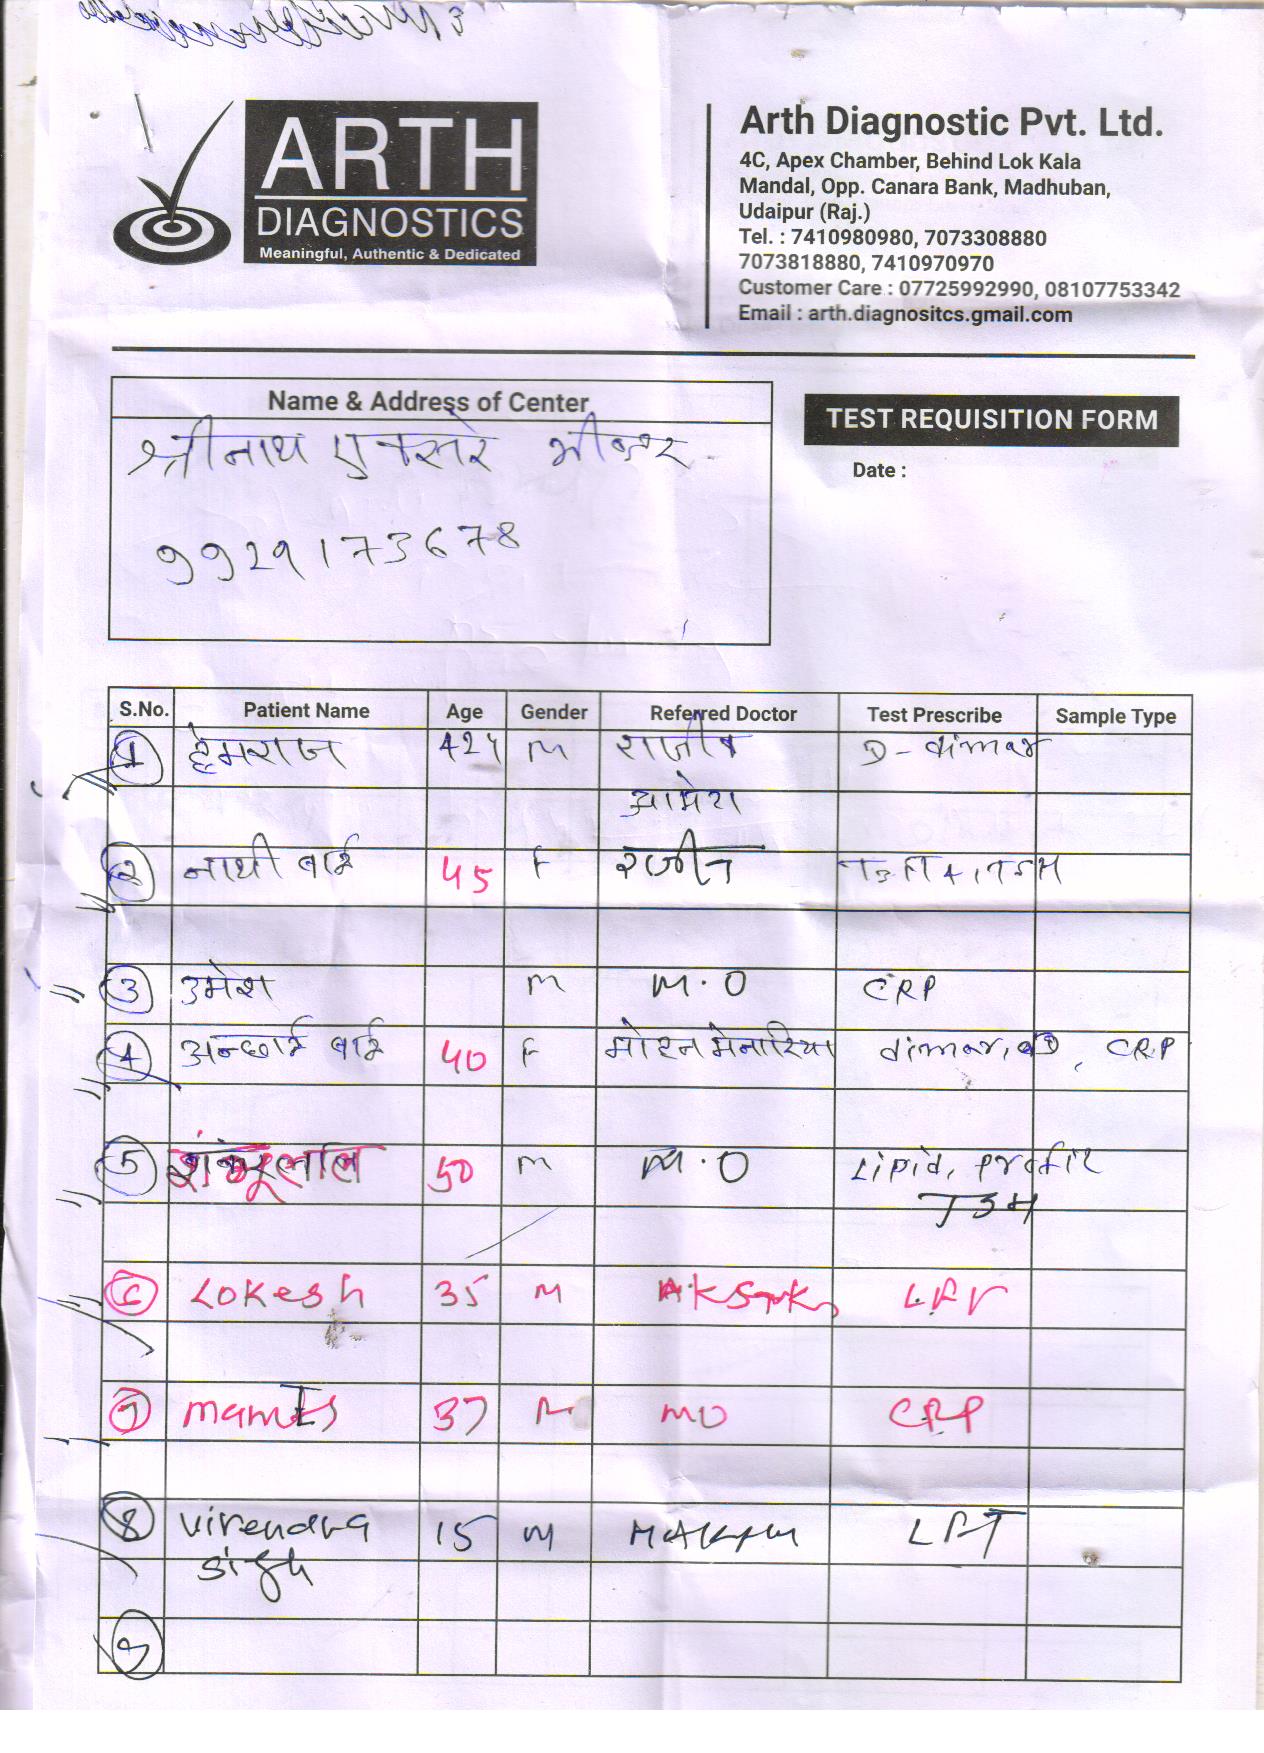 ARTH
DIAGNOSTICS
Meaningful, Authentic & Dedicated
Arth Diagnostic Pvt. Ltd.
4C, Apex Chamber, Behind Lok Kala
Mandal, Opp. Canara Bank, Madhuban,
Udaipur (Raj.)
Tel. : 7410980980, 7073308880
7073818880, 7410970970
Customer Care : 07725992990, 08107753342
Email : arth.diagnositcs.gmail.com
Name & Address of Center
श्रीनाथ एक्सरे भीण्डर
9929173678
TEST REQUISITION FORM
Date :
S.No. Patient Name Age Gender Referred Doctor Test Prescribe Sample Type
1 हेमराज 42y M राजीव D-dimar
आमेरा
2 नाथी बाई 45 F T3T4,TSH
3 उमेश M M.O CRP
4 अन्छाई बाई 40 F मोहन मेनारिया dimar, D, CRP
5 शंभूलाल 50 M M.O Lipid, profil
TSH
6 Lokesh 35 M
7 37 MO CRP
8 virendra 15 M LFT
singh
9